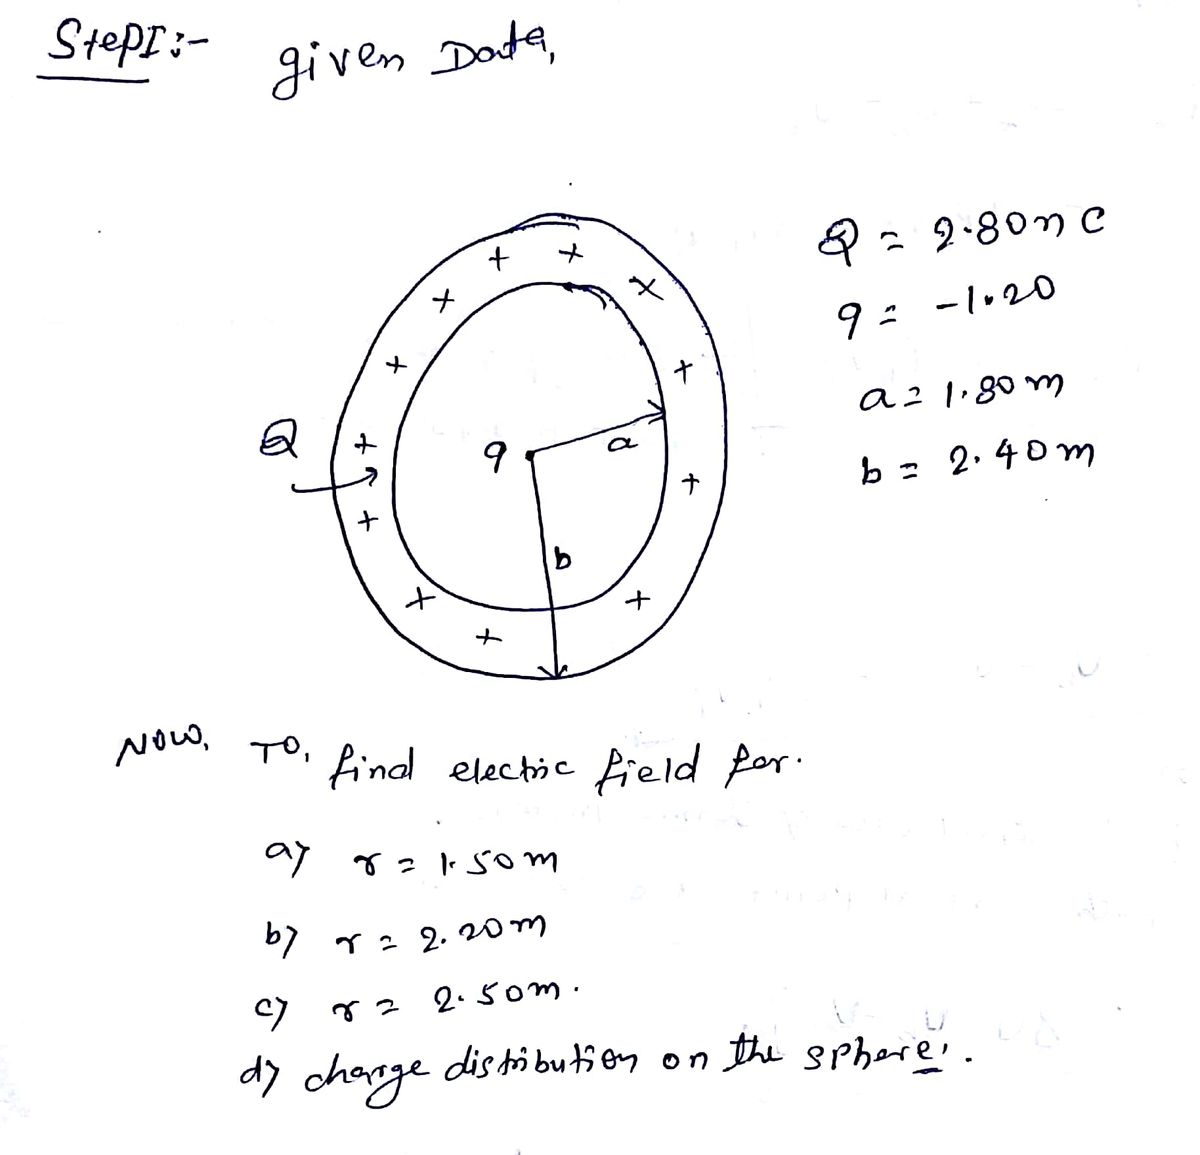 StepI:- given Data,
Q = 2.80nC
q = -1.20
a = 1.80m
b = 2.40m
Q
q
a
b
+ + + + + + + + + + + + × +
Now, To, find electric field for.
a) r = 1.50m
b) r = 2.20m
c) r = 2.50m.
d) charge distribution on the sphere.